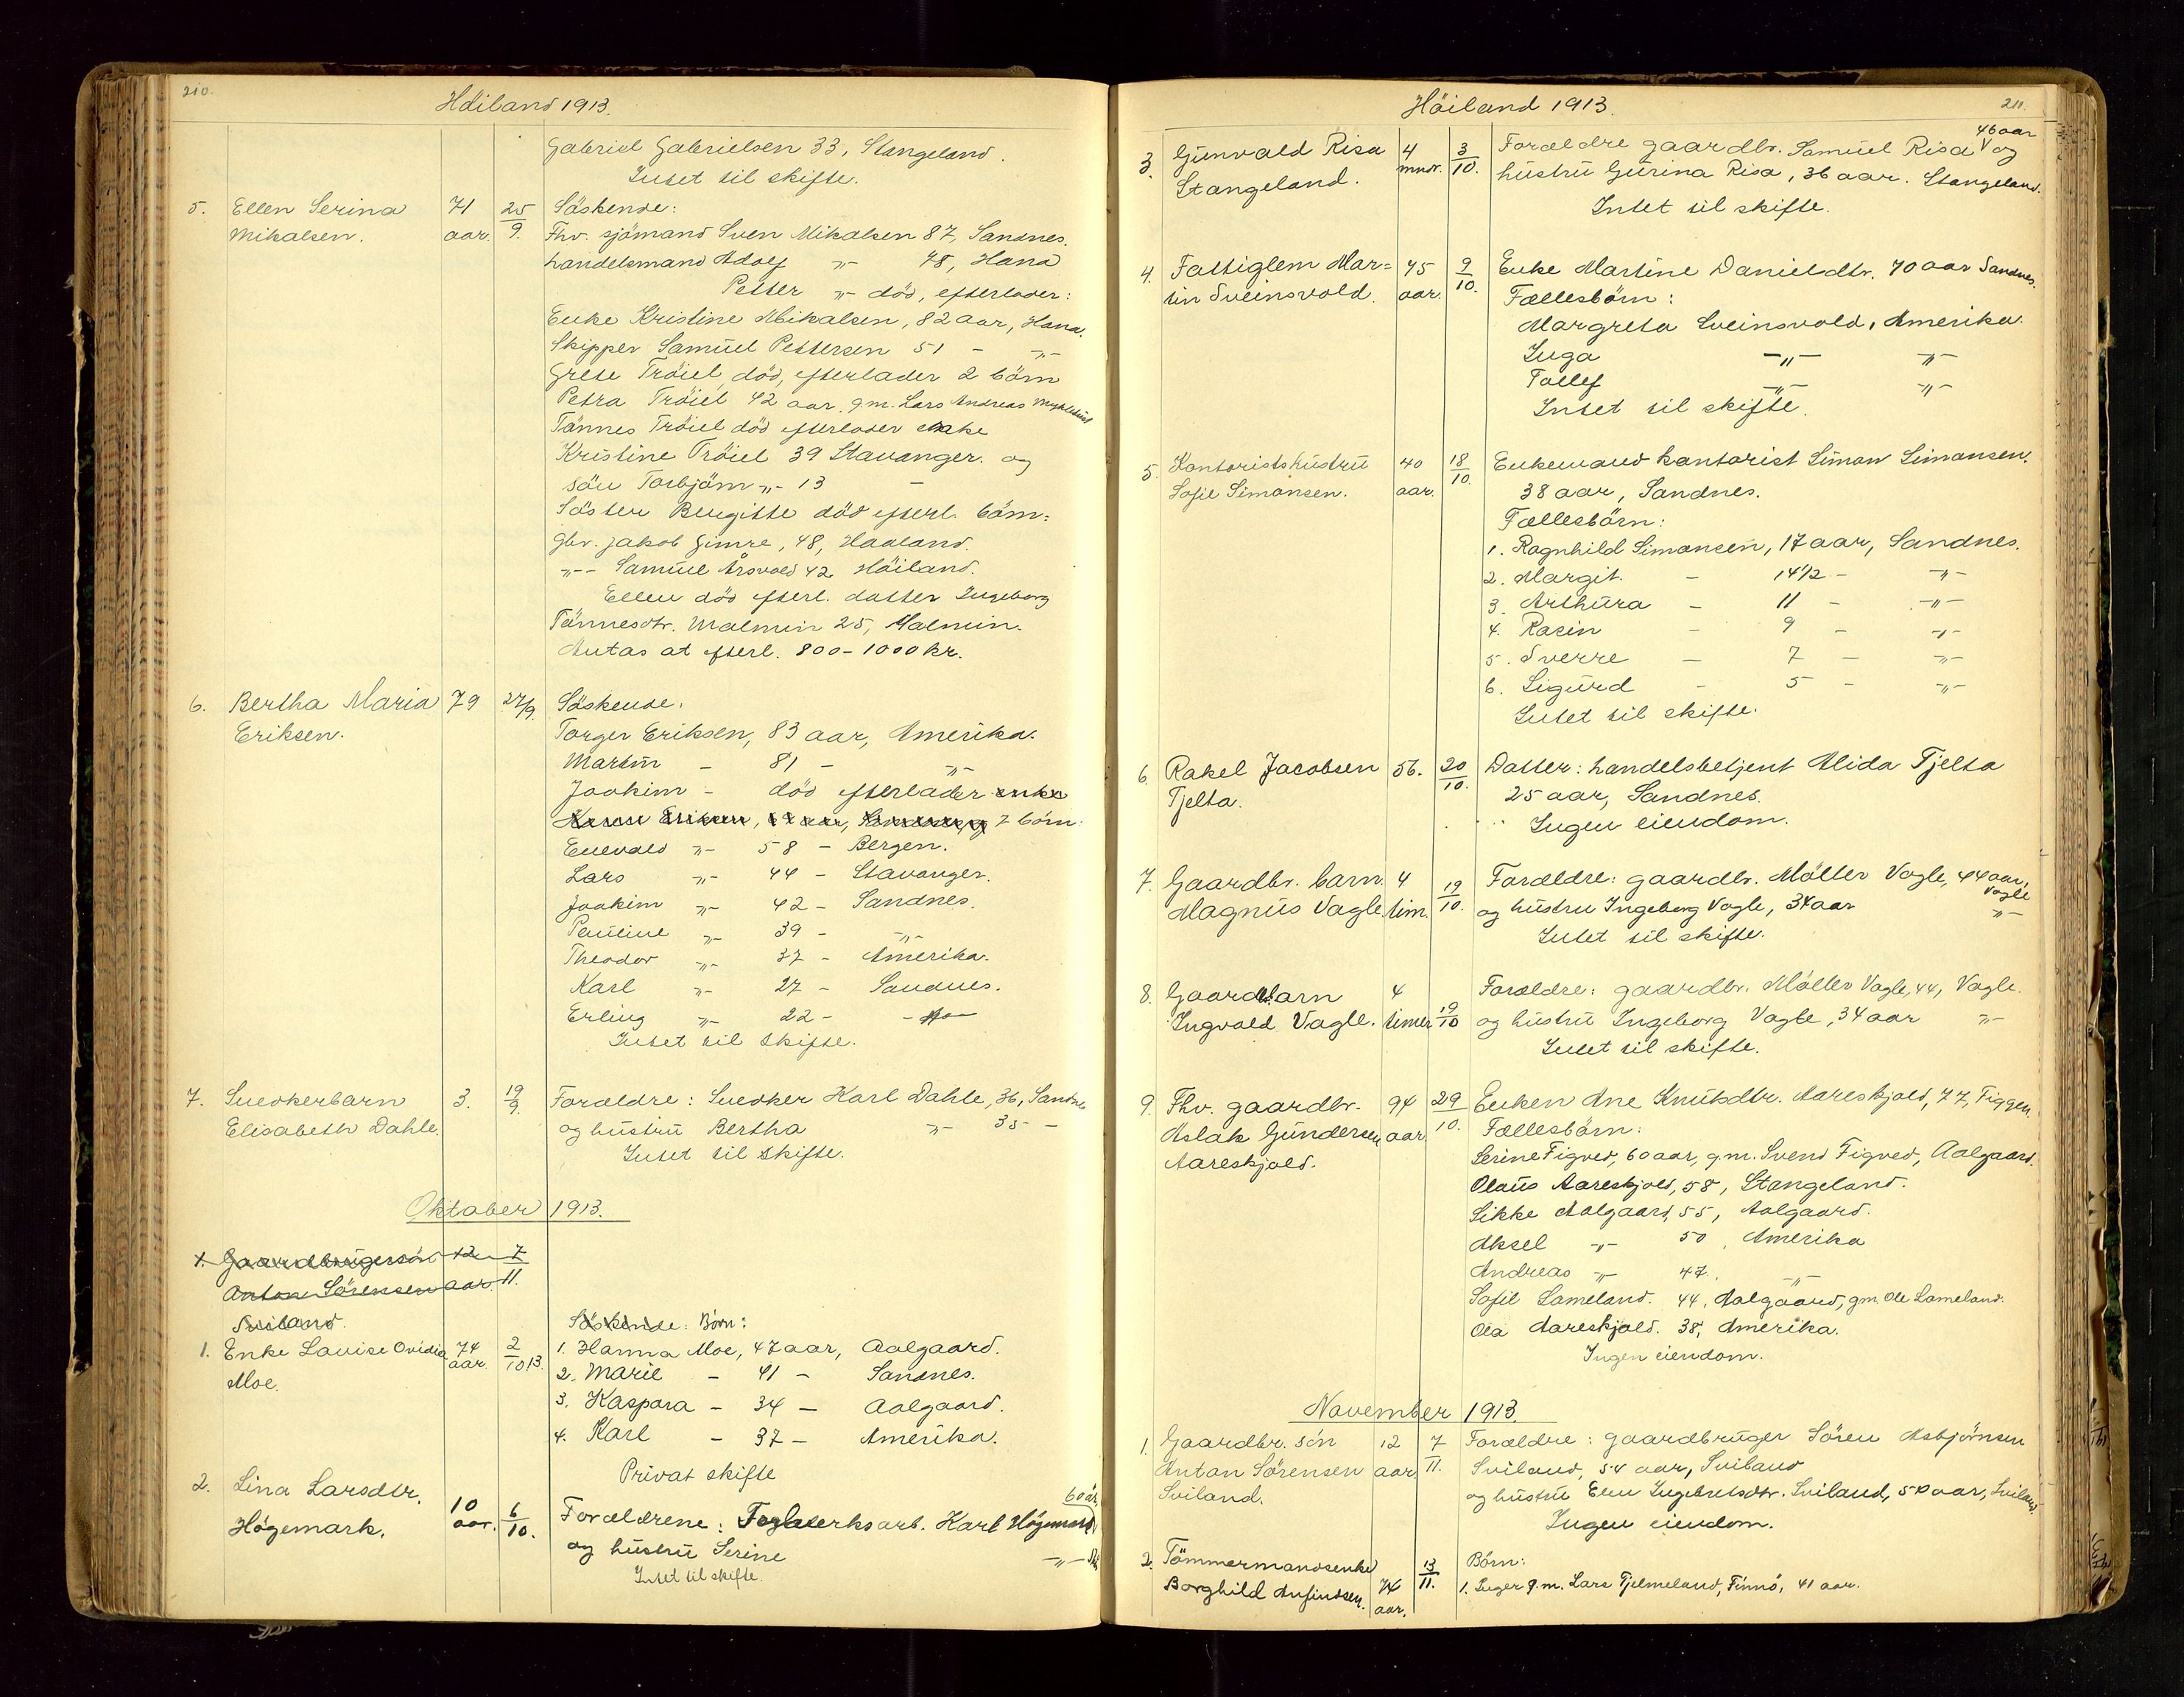 210.
Höiland 1913.
Gabriel Gabrielsen 33, Stangeland.
Intet til skifte.
5. Ellen Serina 71 25/9. Söskende:
Mikalsen. aar. Fhv. sjömand Sven Mikalsen 87, Sandnes.
handelsmand Adolf -"- 78, Hana
Petter -"- död, efterlader:
Enke Kristine Mikalsen, 82 aar, Hana.
Skipper Samuel Pettersen 51 - -"-
Grete Tröiel, död, efterlader 2 börn
Petra Tröiel 42 aar g.m. Lars Andreas
Tönnes Tröiel död efterlader enke
Kristine Tröiel 39 Stavanger. og
sön Torbjörn -"- 13 -
Söster Bengitte död efterl. börn:
gbr. Jakob Gimre, 48, Haaland.
-"- Samuel Årsvold 42 Höiland.
Ellen död efterl. datter Ingeborg
Tönnesdtr. Malmin 25, Malmin.
Antas at efterl. 800-1000 kr.
6. Bertha Maria 79 27/9. Söskende.
Eriksen. Torger Eriksen, 83 aar, Amerika.
Martin - 81 - -"-
Joakim - död efterlader enke
7 börn:
Enevald -"- 58 - Bergen.
Lars -"- 44 - Stavanger.
Joakim -"- 42 - Sandnes.
Pauline -"- 39 - -"-
Theodor -"- 37 - Amerika.
Karl -"- 27 - Sandnes.
Erling -"- 22 -
Intet til skifte.
7. Snedkerbarn 3. 19/9. Forældre: Snedker Karl Dahle, 36, Sandnes
Elisabeth Dahle. og hustru Bertha -"- 35 -
Intet til skifte.
Oktober 1913.
1. Gaardbrugersön 12 7/11.
Anton Sörensen aar.
Sviland.
Söskende: Börn:
1. Enke Lovise Ovidia 74 aar. 2/10 13. 1. Hanna Moe, 47 aar, Aalgaard.
Moe. 2. Marie - 41 - Sandnes.
3. Kaspara - 34 - Aalgaard.
4. Karl - 37 - Amerika.
Privat skifte
2. Lina Larsdtr. 60 år,
Högemark. 10 aar. 6/10. Forældrene: Teglverksarb. Karl Högemark
og hustru Serine -"-
Intet til skifte.
211.
Höiland 1913.
46 aar
3. Gunvald Risa 4 3/10. Forældre gaardbr. Samuel Risa og
Stangeland. mndr. hustru Gurina Risa, 36 aar. Stangeland.
Intet til skifte.
4. Fattiglem Mar= 75 9/10. Enke Martine Danielsdtr. 70 aar Sandnes.
tin Sveinsvold. aar. Fællesbörn:
Margreta Sveinsvold, Amerika.
Inga -"- -"-
Tollef -"- -"-
Intet til skifte.
5. Kontoristhustru 40 18/10. Enkemand kontorist Simon Simonsen.
Sofie Simonsen. aar. 38 aar, Sandnes.
Fællesbörn:
1. Ragnhild Simonsen, 17 aar, Sandnes.
2. Margit. - 14 1/2 - -"-
3. Arthura - 11 - -"-
4. Rasin - 9 - -"-
5. Sverre - 7 - -"-
6. Sigurd - 5 - -"-
Intet til skifte.
6. Rakel Jacobsen 56. 20/10. Datter: handelsbetjent Alida Tjelta
Tjelta. 25 aar, Sandnes.
Ingen eiendom.
7. Gaardbr. barn 4 19/10. Forældre: gaardbr. Möller Vagle, 44 aar, Vagle
Magnus Vagle. tim. og hustru Ingeborg Vagle, 34 aar -"-
Intet til skifte.
8. Gaardbr. barn 4 19/10 Forældre: gaardbr. Möller Vagle, 44, Vagle.
Ingvald Vagle. timer og hustru Ingeborg Vagle, 34 aar -"-
Intet til skifte.
9. Fhv. gaardbr. 94 29/10. Enken Ane Knutsdtr. Aareskjold, 77, Figgen
Aslak Gundersen aar Fællesbörn:
Aareskjold. Serine Figved, 60 aar, g.m. Svend Figved, Aalgaard.
Olaus Aareskjold, 58, Stangeland.
Sikke Aalgaard, 55, Aalgaard.
Aksel -"- 50, Amerika
Andreas -"- 47. -"-
Sofie Lomeland. 44, Aalgaard, gm. Ole Lomeland.
Ola Aareskjold. 38, Amerika.
Ingen eiendom.
November 1913.
1. Gaardbr. sön 12 7/11. Forældre: gaardbruger Sören Asbjörnsen
Anton Sörensen aar. Sviland, 54 aar, Sviland
Sviland. og hustru Elen Ingebretsdtr. Sviland, 50 aar, Sviland.
Ingen eiendom.
2. Tömmermandsenke 13/11. Börn:
Borghild Anfindsen. 74 aar. 1. Inger g.m. Lars Tjelmeland, Finnö, 41 aar.